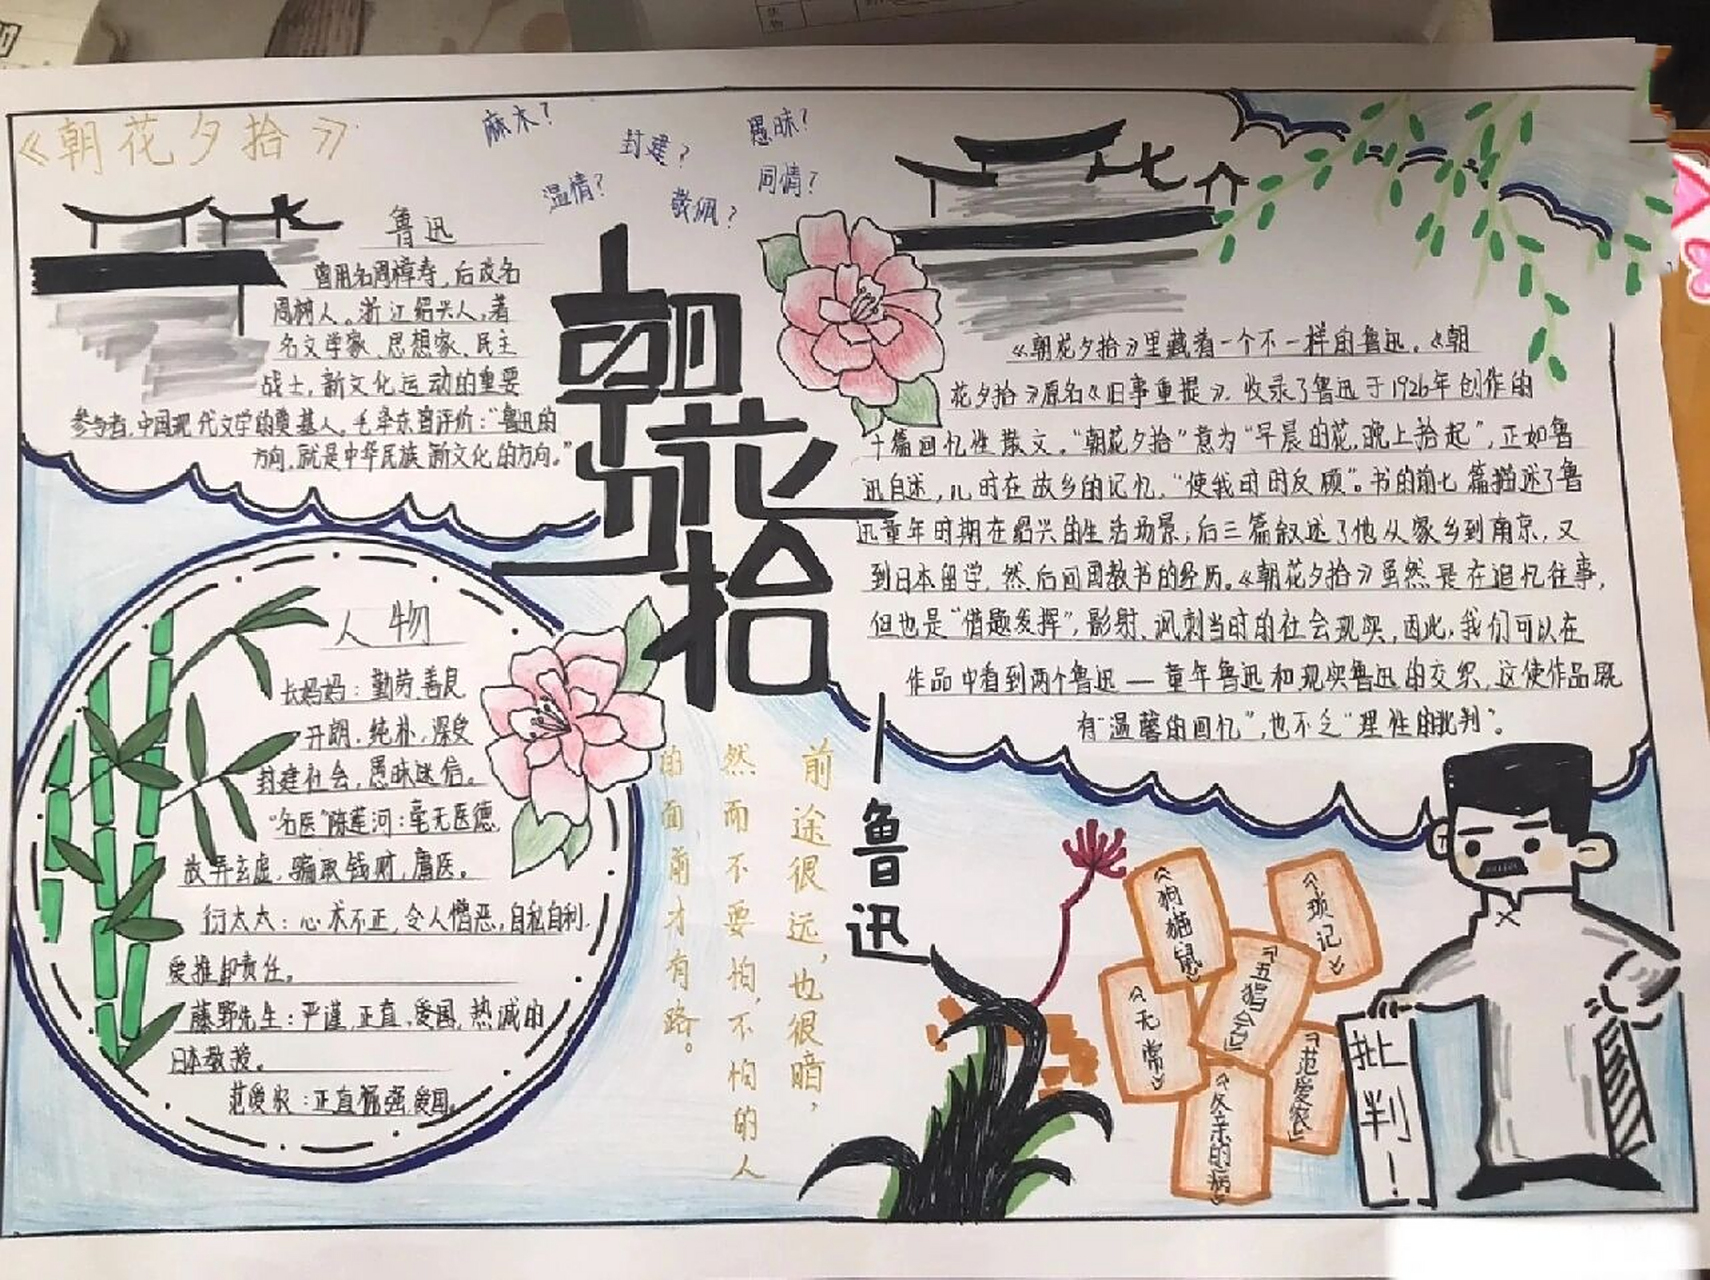 《朝花夕拾》
麻木？
封建？
愚昧？
温情？
敬佩？
同情？
鲁迅
曾用名周樟寿，后改名
周树人。浙江绍兴人，著
名文学家、思想家、民主
战士，新文化运动的重要
参与者，中国现代文学的奠基人。毛泽东曾评价：“鲁迅的
方向，就是中华民族新文化的方向。”
朝花夕拾
鲁迅
《朝花夕拾》里藏着一个不一样的鲁迅。《朝
花夕拾》原名《旧事重提》，收录了鲁迅于1926年创作的
十篇回忆性散文。“朝花夕拾”意为“早晨的花，晚上拾起”，正如鲁
迅自述，儿时在故乡的记忆，“使我时时反顾”。书的前七篇描述了鲁
迅童年时期在绍兴的生活场景；后三篇叙述了他从家乡到南京，又
到日本留学，然后回国教书的经历。《朝花夕拾》虽然是在追忆往事，
但也是“借题发挥”，影射、讽刺当时的社会现实，因此，我们可以在
作品中看到两个鲁迅—童年鲁迅和现实鲁迅的交织，这使作品既
有“温馨的回忆”，也不乏“理性的批判”。
人物
长妈妈：勤劳、善良
开朗、纯朴，深受
封建社会，愚昧迷信。
“名医”陈莲河：毫无医德，
故弄玄虚，骗取钱财，庸医。
衍太太：心术不正，令人憎恶，自私自利，
爱推卸责任。
藤野先生：严谨，正直、爱国，热诚的
日本教授。
范爱农：正直倔强，爱国。
前途很远，也很暗，
然而不要怕，不怕的人
的面前才有路。
《狗猫鼠》
《琐记》
《五猖会》
《无常》
《范爱农》
《父亲的病》
批判！